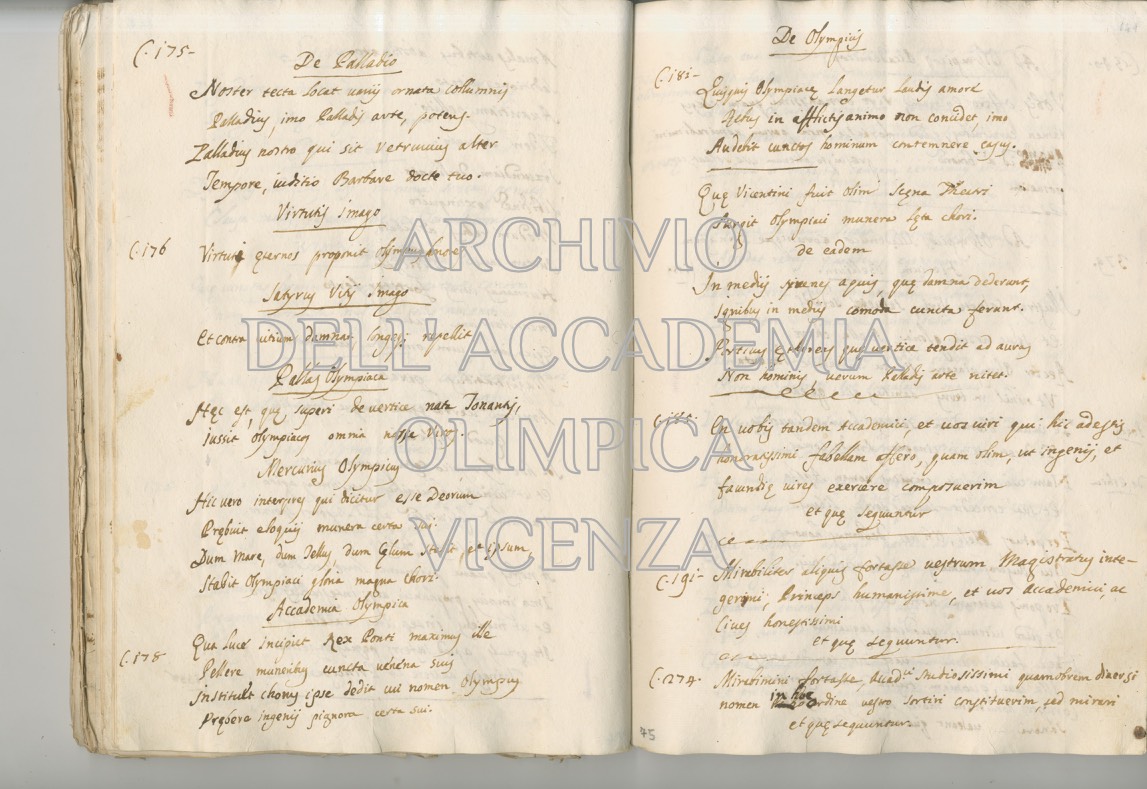 C. 175-
De Palladio
Noster tecta locat varijs ornata collumnis
Palladius, imo Palladis arte, potens.
Palladius nostro qui sit Vetruvius alter
Tempore, iuditio Barbare docte tuo.
Virtutis imago
C. 176
Virtutis eternos proponit Olympus
Satyrus Vitij Imago
Et contra vitium damnat longeq; repellit
Pallas Olympiaca
Hęc est, quę superi de vertice nata Tonantis,
Iussit Olympiacos omnia nosse Viros.
Mercurius Olympicus
Hic vero interpres qui dicitur esse Deorum
Prębuit eloquij munera certa sui.
Dum Mare, dum Tellus dum Cęlum stabit, et ipsum
Stabit Olympiaci gloria magna Chori.
Accademia Olympica
C. 178
Qua luce incipiet Rex Ponti maximus ille
Pellere muneribus cuncta venena suis
Instituit chorus ipse dedit cui nomen Olympus
Prębere ingenij pignora certa sui.
De Olympicis
C. 181-
Quisquis Olympiacę tangetur laudis amore
in afflictis animo non concidet, imo
Audebit cunctos hominum contemnere casus.
Quę Vicentini fuit olim scęna Theatri
Surgit Olympiaci munera lęta chori.
de eadem
In medijs iuvenes aquis, quę damna dederunt,
Ignibus in medijs comoda cuncta ferunt.
Porticus ęthereas quę vertice tendit ad auras
Non hominis, verum Palladis arte nitet.
En vobis tandem Academici et vos viri qui hic adestis
honoratissimi fabellam affero, quam olim, ut ingenij, et
facundię vires exercere composuerim
et quę sequuntur
C. 191-
Mirabilitur aliquis fortasse vestrum Magistratus inte-
gerrimi; Princeps humanissime, et vos Accademici, ac
Cives honestissimi
et quę sequuntur.
C. 274.
Miremini fortasse, Audit.i studiosissimi quamobrem diversi
nomen in hoc ordine vestro sortiri constituerim, sed mirari
et quę sequuntur.
75
ARCHIVIO
DELL'ACCADEMIA
OLIMPICA
VICENZA